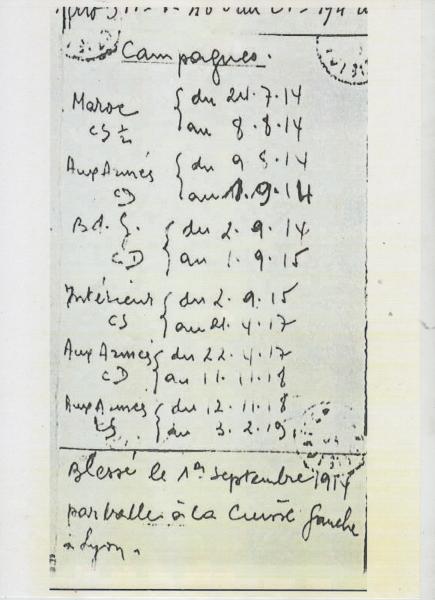 Campagnes.
Maroc { du 24.7.14
CS ½ { au 8.8.14
Aux Armés { du 9 8.14
CD { au 1.9.14
Bl. G. { du 2.9.14
CD { au 1.9.15
Intérieur { du 2.9.15
CS { au 21.4.17
Aux Armés { du 22.4.17
CD { au 11.11.18
Aux Armés { du 12.11.18
CS { au 3.2.19.
Blessé le 1er Septembre 1914
par balle à la Cuisse gauche
à Lyon.